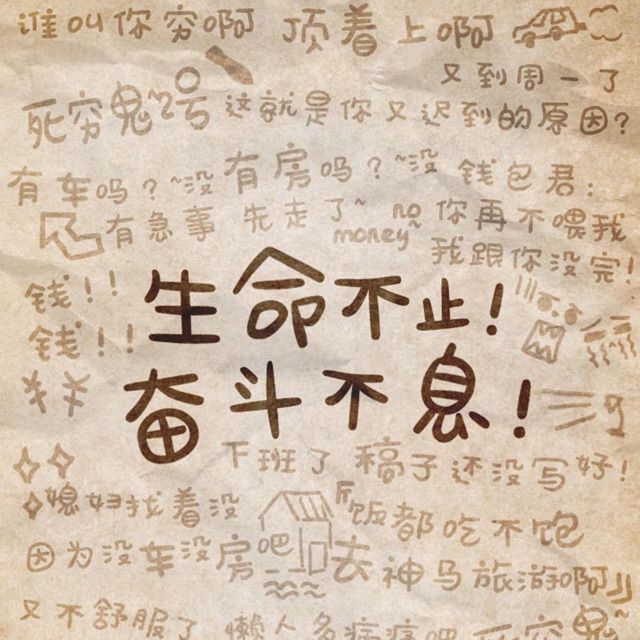 谁叫你穷啊 顶着上啊
又到周一了
死穷鬼~2号 这就是你又迟到的原因?
有车吗?~没有房吗?~没 钱包君:
有急事 先走了~ no money~ 你再不喂我
我跟你没完!
钱!!
生命不止!
钱!!
¥¥
奋斗不息!
下班了 稿子还没写好!
媳妇找着没 饭都吃不饱
因为没车没房吧 去神马旅游啊!!
又不舒服了 懒人多病痛吧